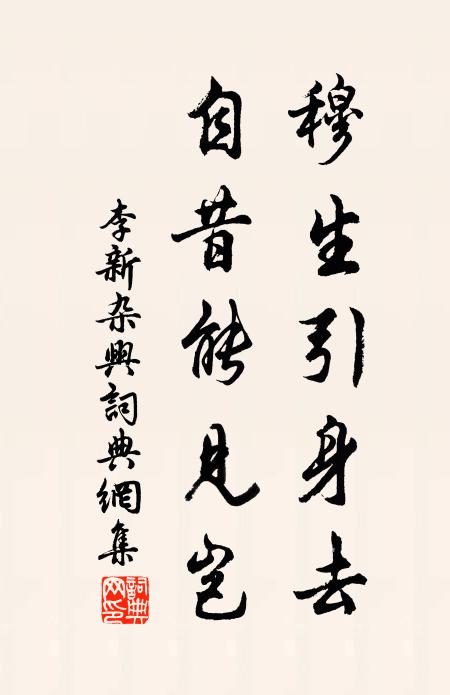 穆生引身去
自昔能見岂
李新杂興詞典網集
詞典网印